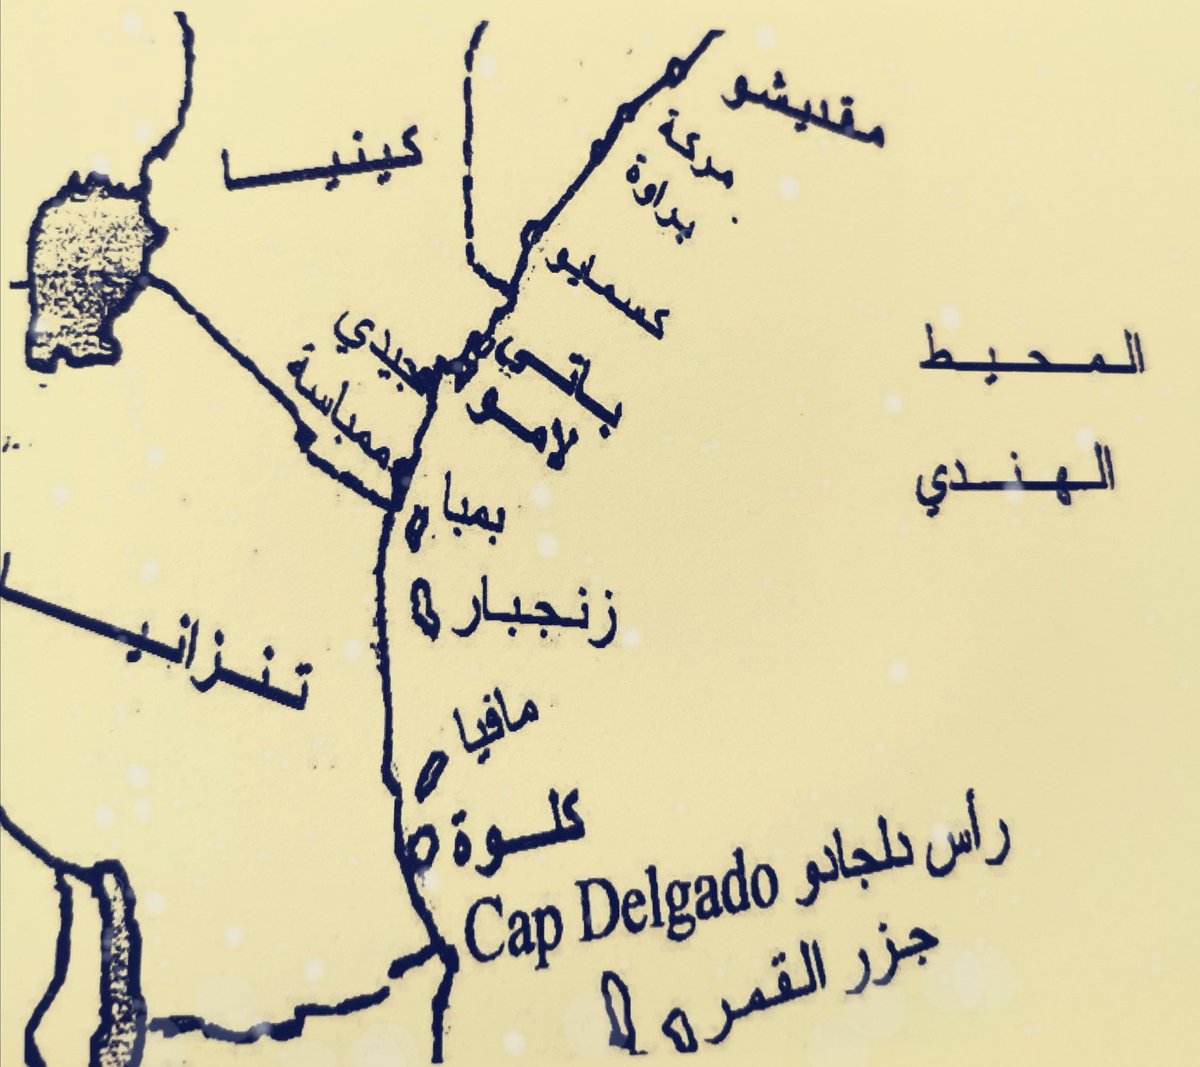 مقديشو
كينيا
مركة
براوة
كسمايو
باتي
جيدي
لامو
ممباسة
المحيط
الهندي
بمبا
زنجبار
تنزانيا
مافيا
كلوة
رأس دلجادو Cap Delgado
جزر القمر